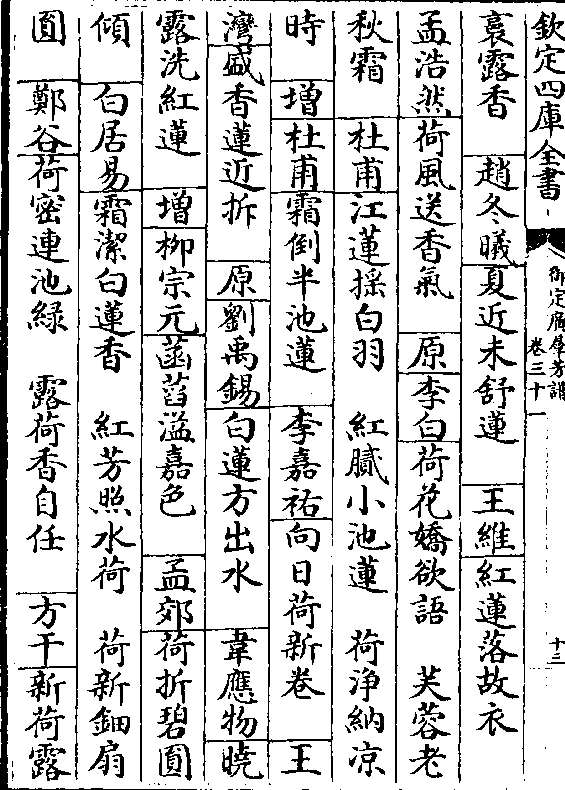 欽定四庫全書
御定廣羣芳譜 卷三十一
十三
裛露香 趙冬曦夏近未舒蓮 王維紅蓮落故衣
孟浩然荷風送香氣 原李白荷花嬌欲語 芙蓉老
秋霜 杜甫江蓮揺白羽 紅膩小池蓮 荷淨納凉
時 增杜甫霜倒半池蓮 李嘉祐向日荷新卷 王
灣盛香蓮近拆 原劉禹錫白蓮方出水 韋應物曉
露洗紅蓮 增柳宗元菡萏溢嘉色 孟郊荷折碧圓
傾 白居易霜潔白蓮香 紅芳照水荷 荷新鈿扇
圓 鄭谷荷密連池綠 露荷香自任 方干新荷露